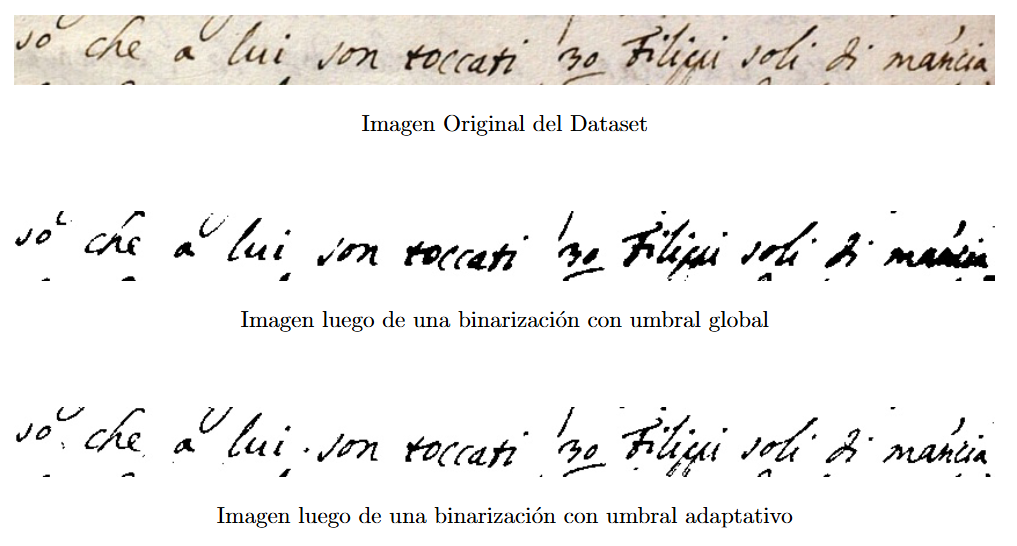 so che a lui son toccati 30 Filippi soli di mancia
Imagen Original del Dataset
so che a lui son toccati 30 Filippi soli di mancia
Imagen luego de una binarización con umbral global
so che a lui son toccati 30 Filippi soli di mancia
Imagen luego de una binarización con umbral adaptativo